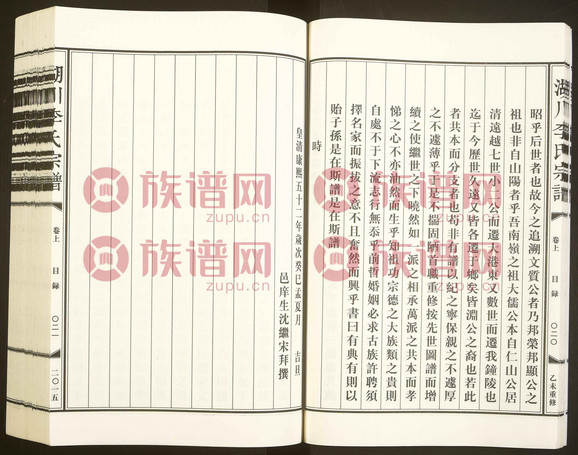 昭乎后世者也故今之追溯文質公者乃邦榮邦顯公之
祖也非自山陽者乎吾南嶺之祖大儒公本自仁山公居
清遠越七世小一公而遷大港東又數世而遷我鐘陵也
迄于今歷世久遠了皆各遷于鄉矣皆淵公之裔也若此
者共本而分支者也苟非有譜以紀之寧保親之不遽厚
之不遽薄乎于是不揣固陋首職重修按先世圖譜而增
續之使繼世之下曉然如一派之相承萬派之共本而孝
悌之心不亦油然而生乎知祖功宗德之大族類之貴則
自處不于下流志行無忝乎前哲婚姻必求古族許聘須
擇名家而振拔之意不且奮然而興乎書曰有典有則以
貽子孫是在斯譜是在斯譜
時
皇清康熙五十二年歲次癸巳孟夏月 吉旦
邑庠生沈繼宋拜撰
湖川李氏宗譜
卷上
目録
〇二〇
乙未重修
湖川李氏宗譜
卷上
目録
〇二一
二〇一五
族谱网
zupu.cn
族谱网
zupu.cn
族谱网
zupu.cn
族谱网
zupu.cn